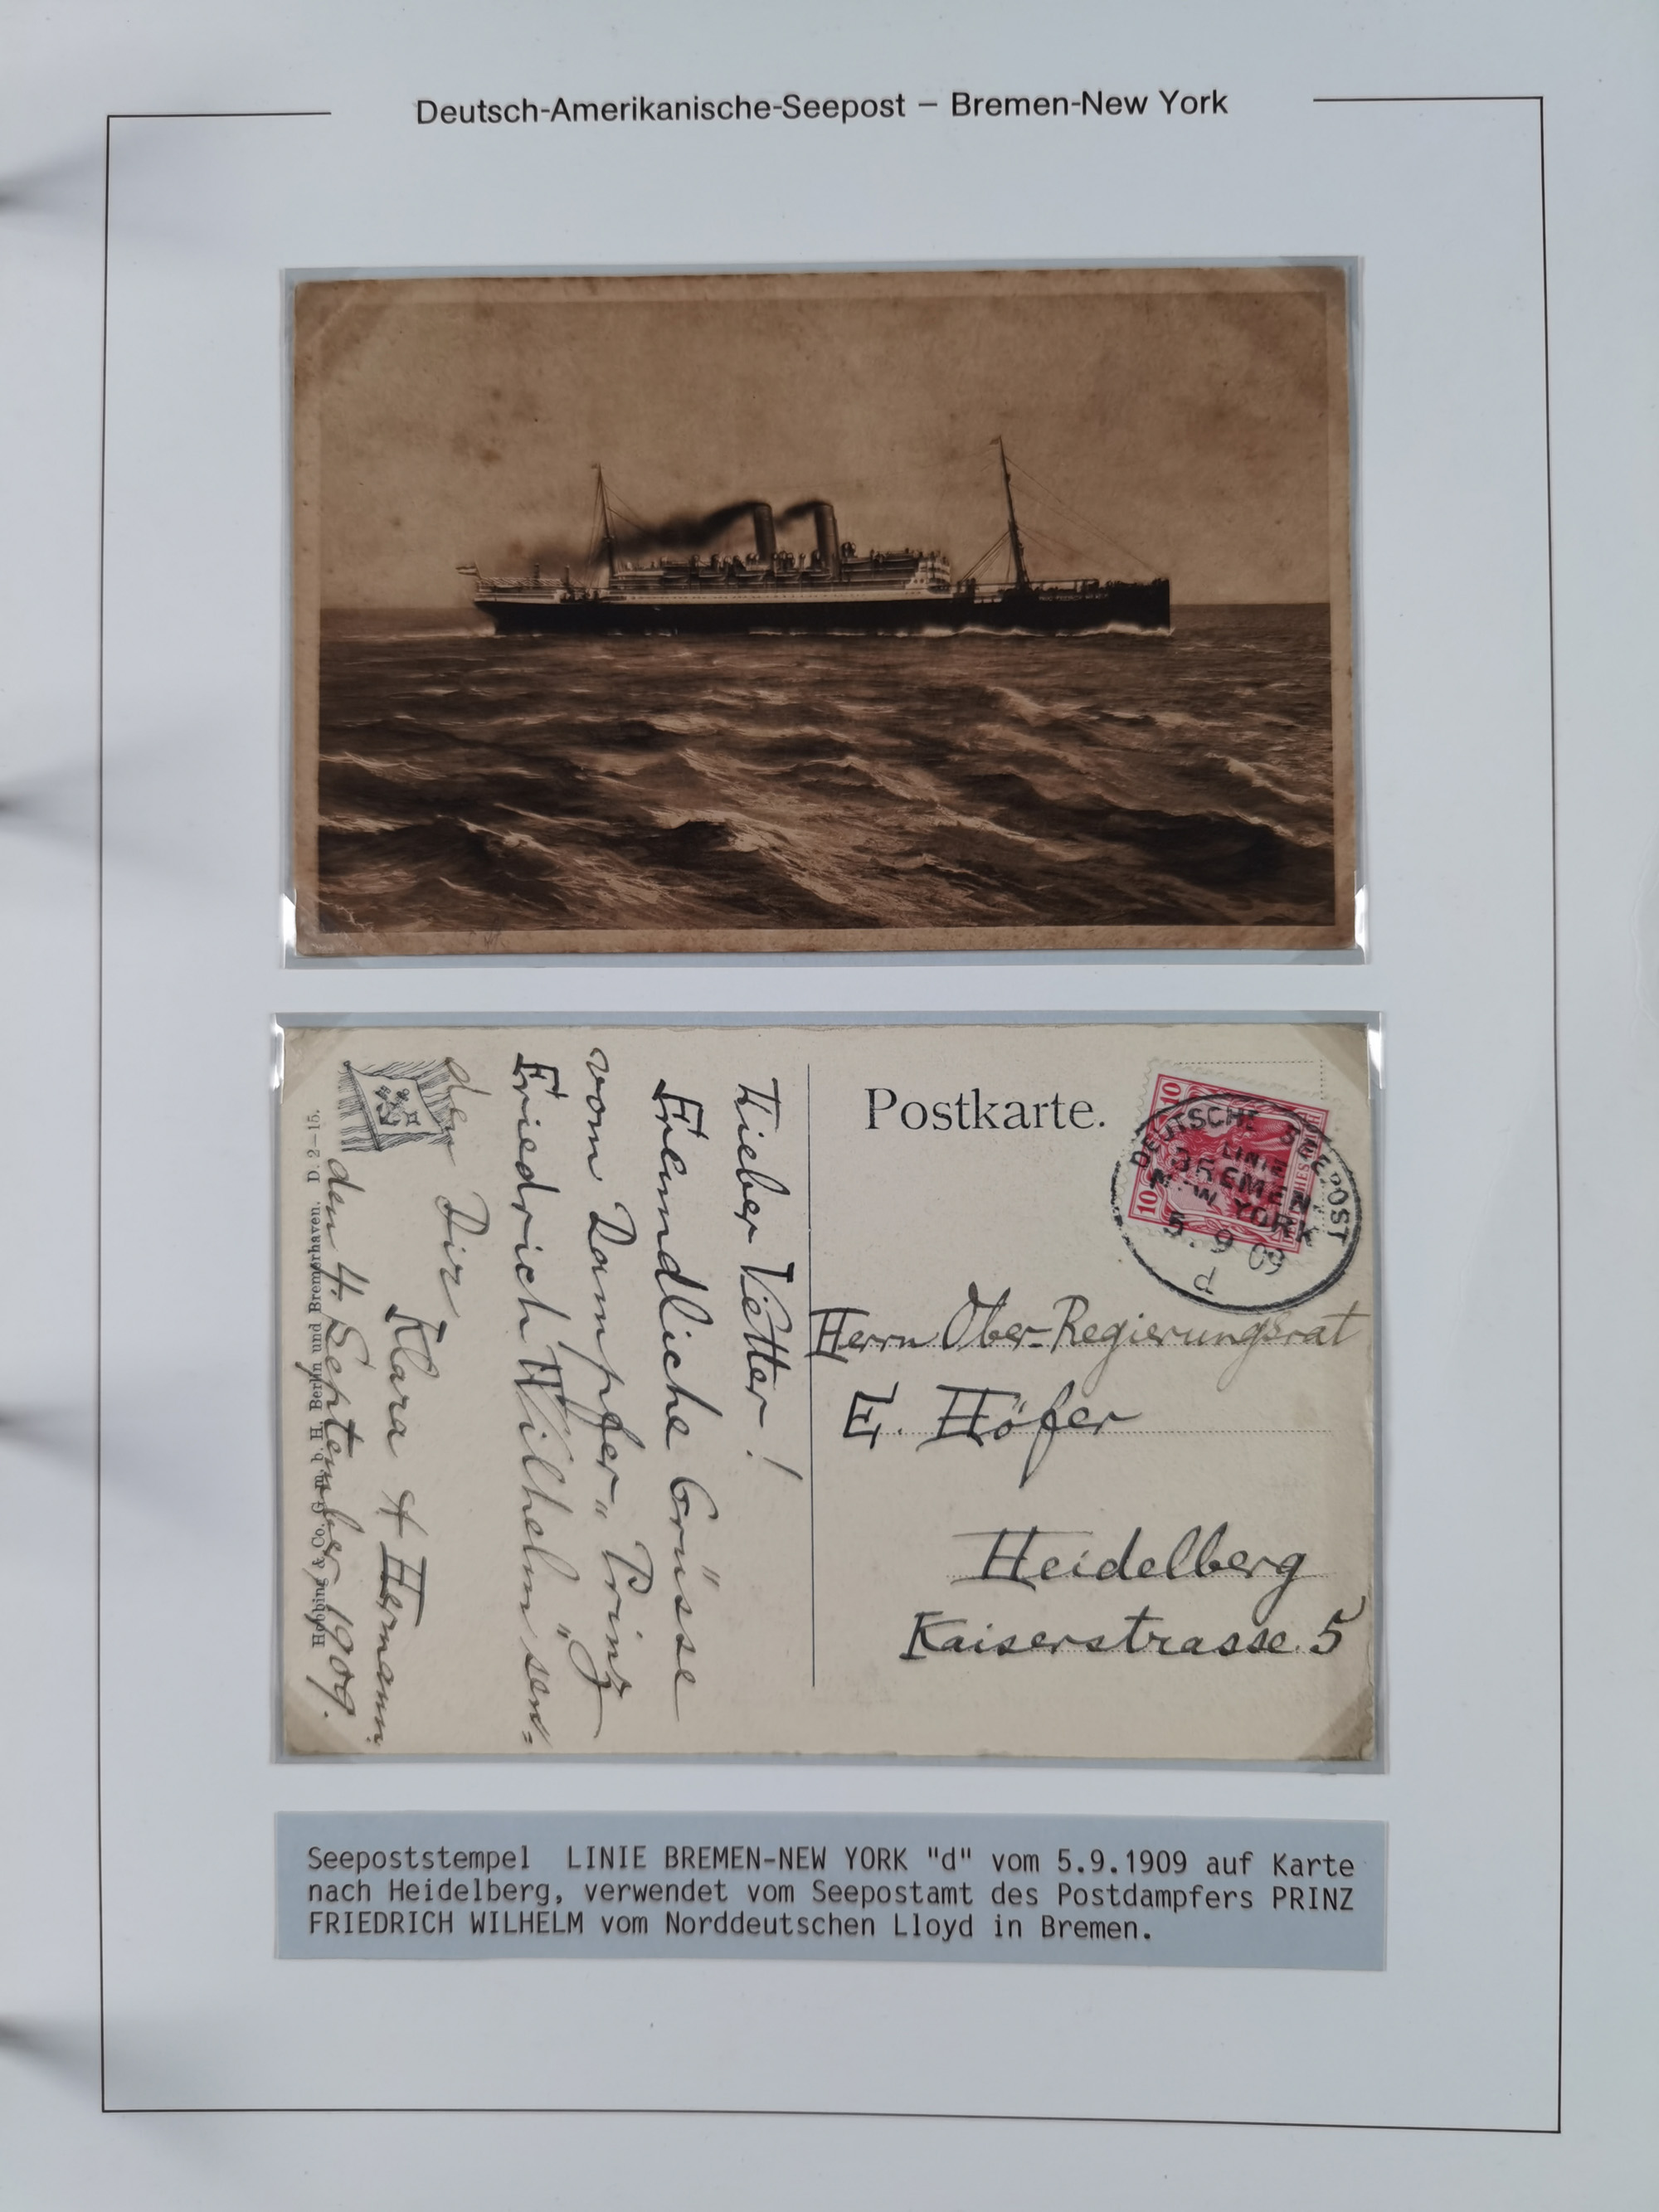 Deutsch-Amerikanische-Seepost – Bremen-New York
Postkarte.
DEUTSCHE SEEPOST
LINIE
BREMEN-
NEW YORK
5.9 09
10
10
Herrn Ober-Regierungsrat
E. Höfer
Heidelberg
Kaiserstrasse 5
Lieber Vetter!
Freundliche Grüsse
vom Dampfer „Prinz
Friedrich Wilhelm" sen=
den Dir
Klara & Hermann.
den 4. September 1909.
Hobbing & Co. G. m. b. H. Berlin und Bremerhaven. D. 2–15.
Seepoststempel LINIE BREMEN-NEW YORK "d" vom 5.9.1909 auf Karte
nach Heidelberg, verwendet vom Seepostamt des Postdampfers PRINZ
FRIEDRICH WILHELM vom Norddeutschen Lloyd in Bremen.